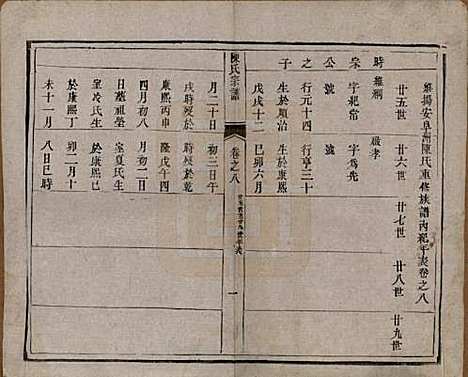 維揚安阜莊陳氏重修族譜丙祀年表卷之八
廿五世
廿六世
廿七世
廿八世
廿九世
時 雍嗣
宗 字祀常
公 號
之 行元十四
子 生於順治
戊戌十二
月二十日
戌時歿於
康熙
四月初八
日墓祖塋
室冷氏生
於康熙丁
未十一月
嗣孝
字爲先
號
行亨三十
生於康熙
己卯六月
初三日午
時歿於乾
隆戊午四
月初二日
室夏氏生
於康熙己
卯二月十
八日巳時
陳氏宗譜
卷之八
一